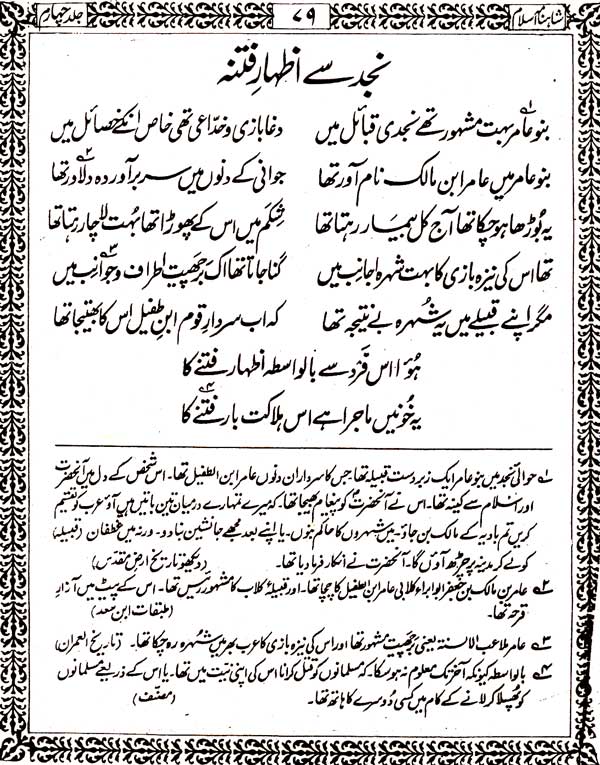 شاہنامہ اسلام
۷۹
جلد چہارم
نجد سے اظہارِ فتنہ
بنو عامر بہت مشہور تھے نجدی قبائل میں
دغا بازی و خدّاعی تھی خاص انکے خصائل میں
بنو عامر میں عامر ابن مالک نام آور تھا
جوانی کے دنوں میں سر برآوردہ دلاور تھا
یہ بُوڑھا ہو چکا تھا آج کل بیمار رہتا تھا
شِکم میں اس کے پھوڑا تھا بہُت لاچار رہتا تھا
تھا اس کی نیزہ بازی کا بہت شہرہ اجانب میں
گنا جاتا تھا اک برچھیت اطراف و جوانب میں
مگر اپنے قبیلے میں یہ شُہرہ بے نتیجہ تھا
کہ اب سردارِ قوم ابنِ طفیل اس کا بھتیجا تھا
ہُوا اس فَرد سے بالواسطہ اظہار فتنے کا
یہ خُونیں ماجرا ہے اس ہلاکت بار فتنے کا
۱؎ حوالیٔ نجد میں بنو عامر ایک زبردست قبیلہ تھا جس کا سردار ان دنوں عامر ابن الطفیل تھا۔ اس شخص کے دل میں آنحضرت
اور اسلام سے کینہ تھا۔ اس نے آنحضرتؐ کو پیغام بھیجا تھا۔ کہ میرے تمہارے درمیان تین باتیں ہیں آؤ عرب کو تقسیم
کریں تم بادیہ کے مالک بن جاؤ۔ میں شہروں کا حاکم بنوں۔ یا اپنے بعد مجھے جانشین بنا دو۔ ورنہ میں غطفان (قبیلہ)
کو لے کر مدینہ پر چڑھ آؤں گا۔ آنحضرت نے انکار فرما دیا تھا۔ (دیکھو تاریخ ارض مقدس)
۲؎ عامر بن مالک بن جعفر ابو براء کلابی عامر ابن الطفیل کا چچا تھا۔ اور قبیلۂ کلاب کا مشہور رئیس تھا۔ اس کے پیٹ میں آزارِ
قرحہ تھا۔ (طبقات ابن سعد)
۳؎ عامر ملاعب الاسنۃ یعنی برچھیت مشہور تھا اور اس کی نیزہ بازی کا عرب بھر میں شُہرہ رہ چکا تھا۔ (تاریخ العمران)
۴؎ بالواسطہ کیونکہ آخر تک معلوم نہ ہو سکا کہ مسلمانوں کو قتل کرانا اس کی اپنی نیت میں تھا۔ یا اس کے ذریعے مسلمانوں
کو پُھسلا کر لانے کے کام میں کسی دُوسرے کا ہاتھ تھا۔ (مصنّف)